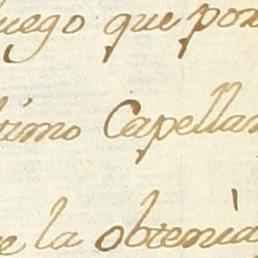 luego que por
timo Capellan
e la obtenia